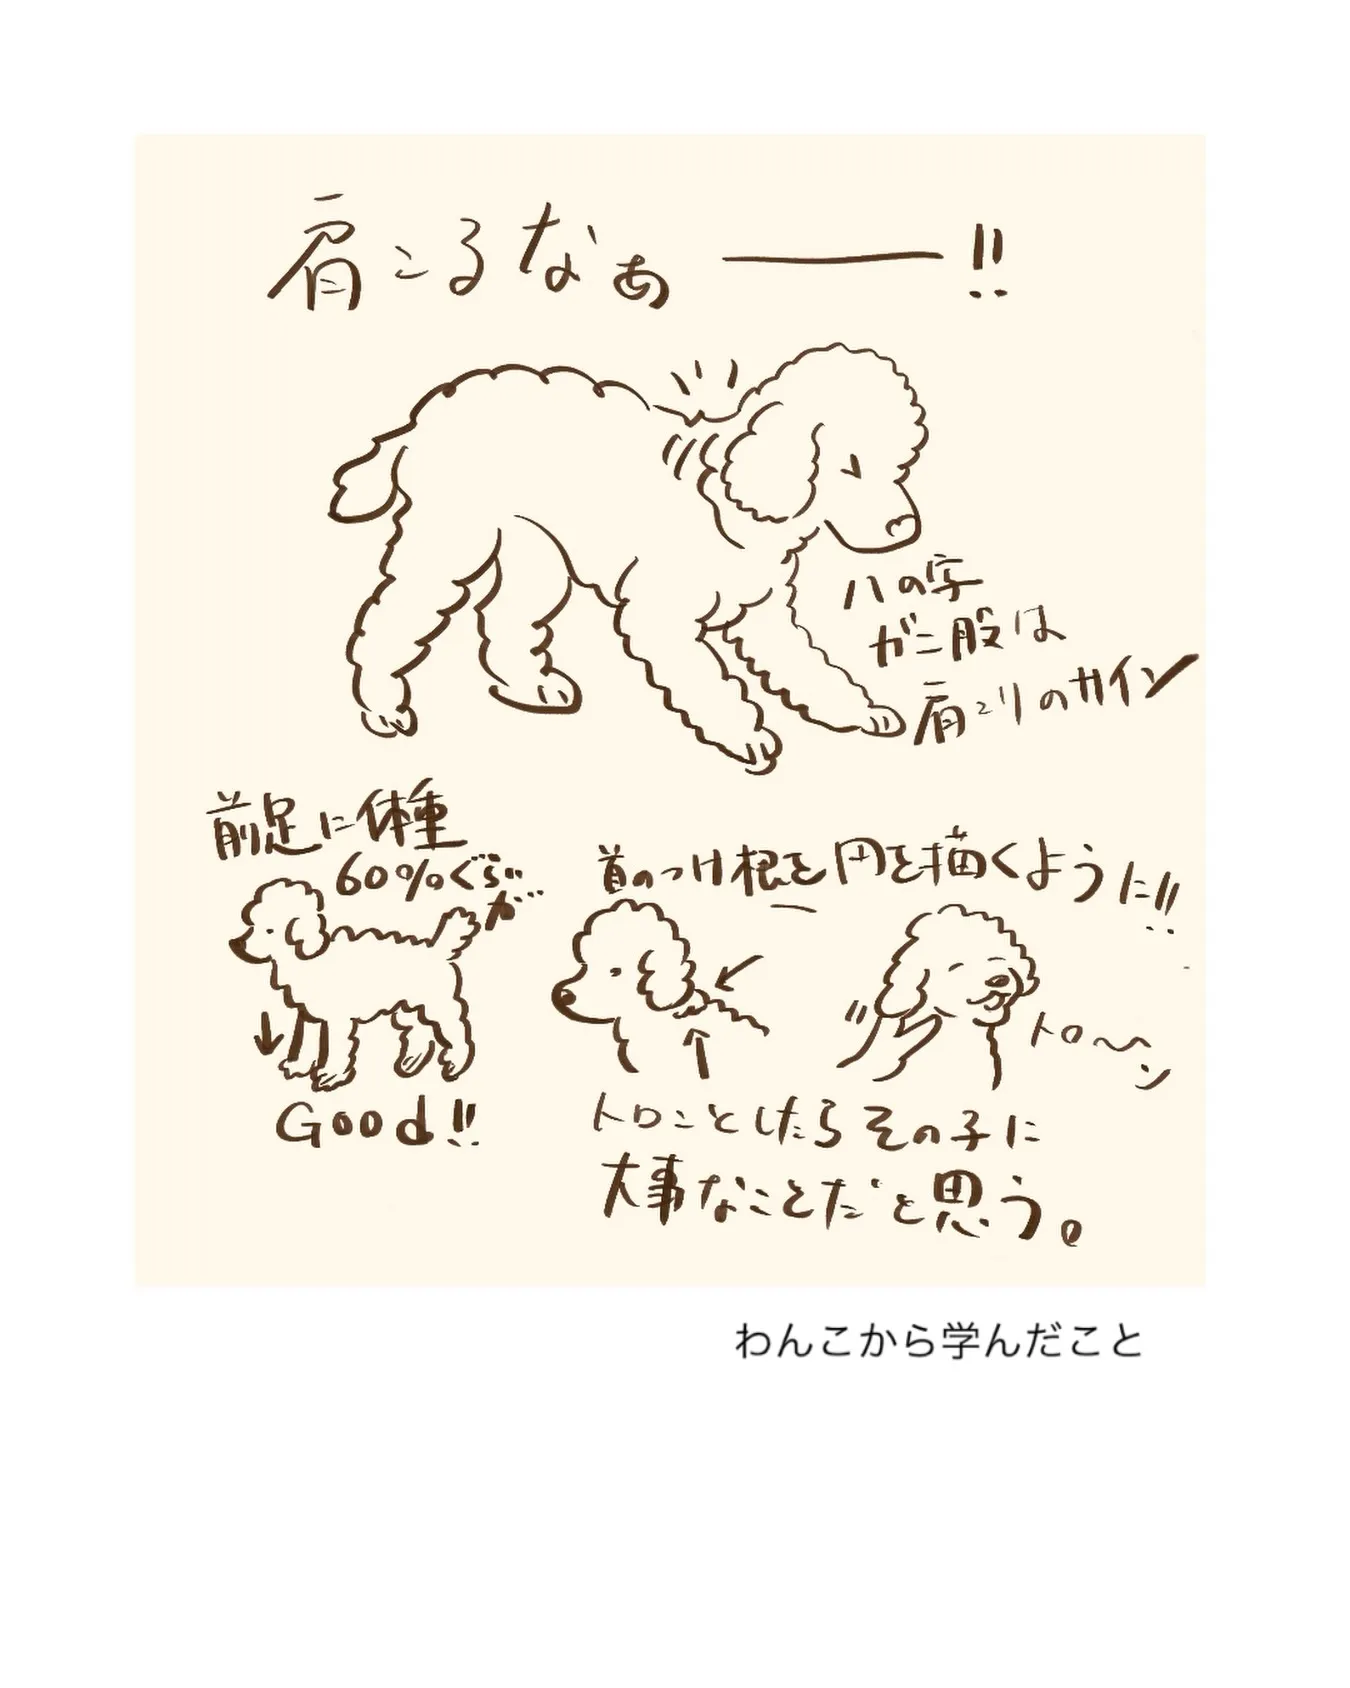 肩こるなぁ――!!
ハの字
ガニ股は
肩こりのサイン
前足に体重
60%ぐらい
が…
Good!!
首のつけ根を円を描くように!!
トロ〜ン
トロンとしたらその子に
大事なことだと思う。
わんこから学んだこと